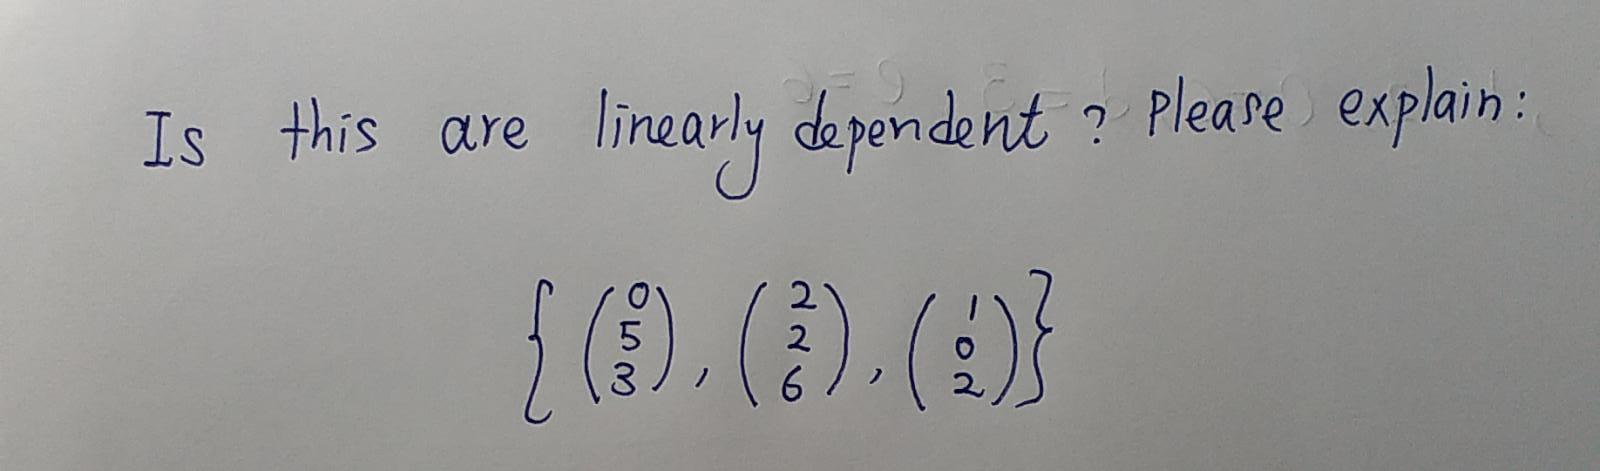 Is this are linearly dependent ? Please explain:
{ (0 5 3), (2 2 6), (1 0 2) }